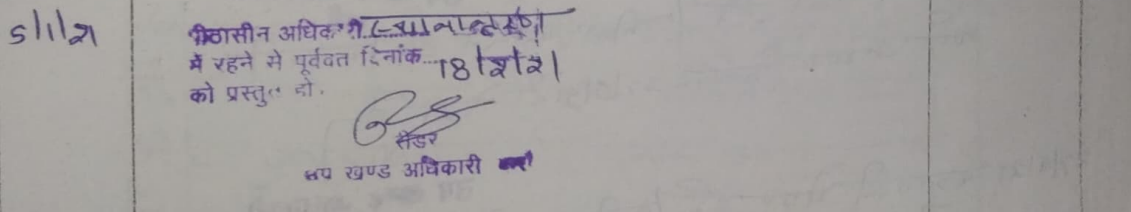 5/1/21
पीठासीन अधिकारी स्थानान्तरण
में रहने से पूर्ववत दिनांक... 18/2/21
को प्रस्तुत हो.
रीडर
उप खण्ड अधिकारी